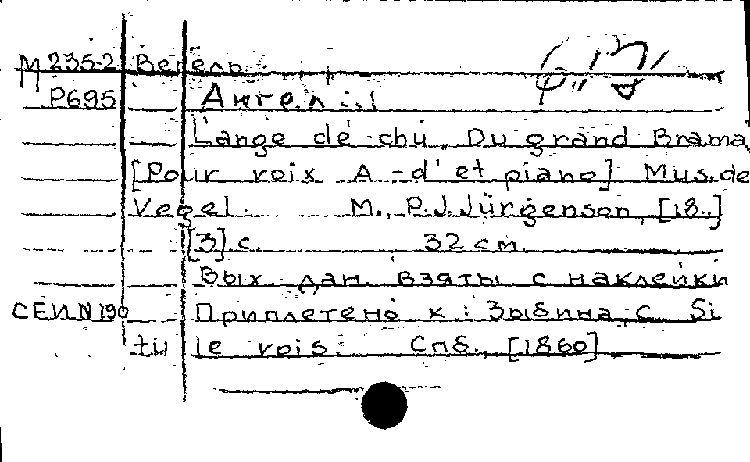 М 235-2 Вегель
P695 Ангел
L'ange déchu. Du grand Brama
[Pour voix A-d' et piano] Mus. de
Vegel. М., P.J. Jürgenson, [18..]
[3] с. 32 см.
Вых. дан. взяты с наклейки
СЕИ N 190 Приплетено к: Зыбина, С. Si
tu le vois. Спб., [1860]